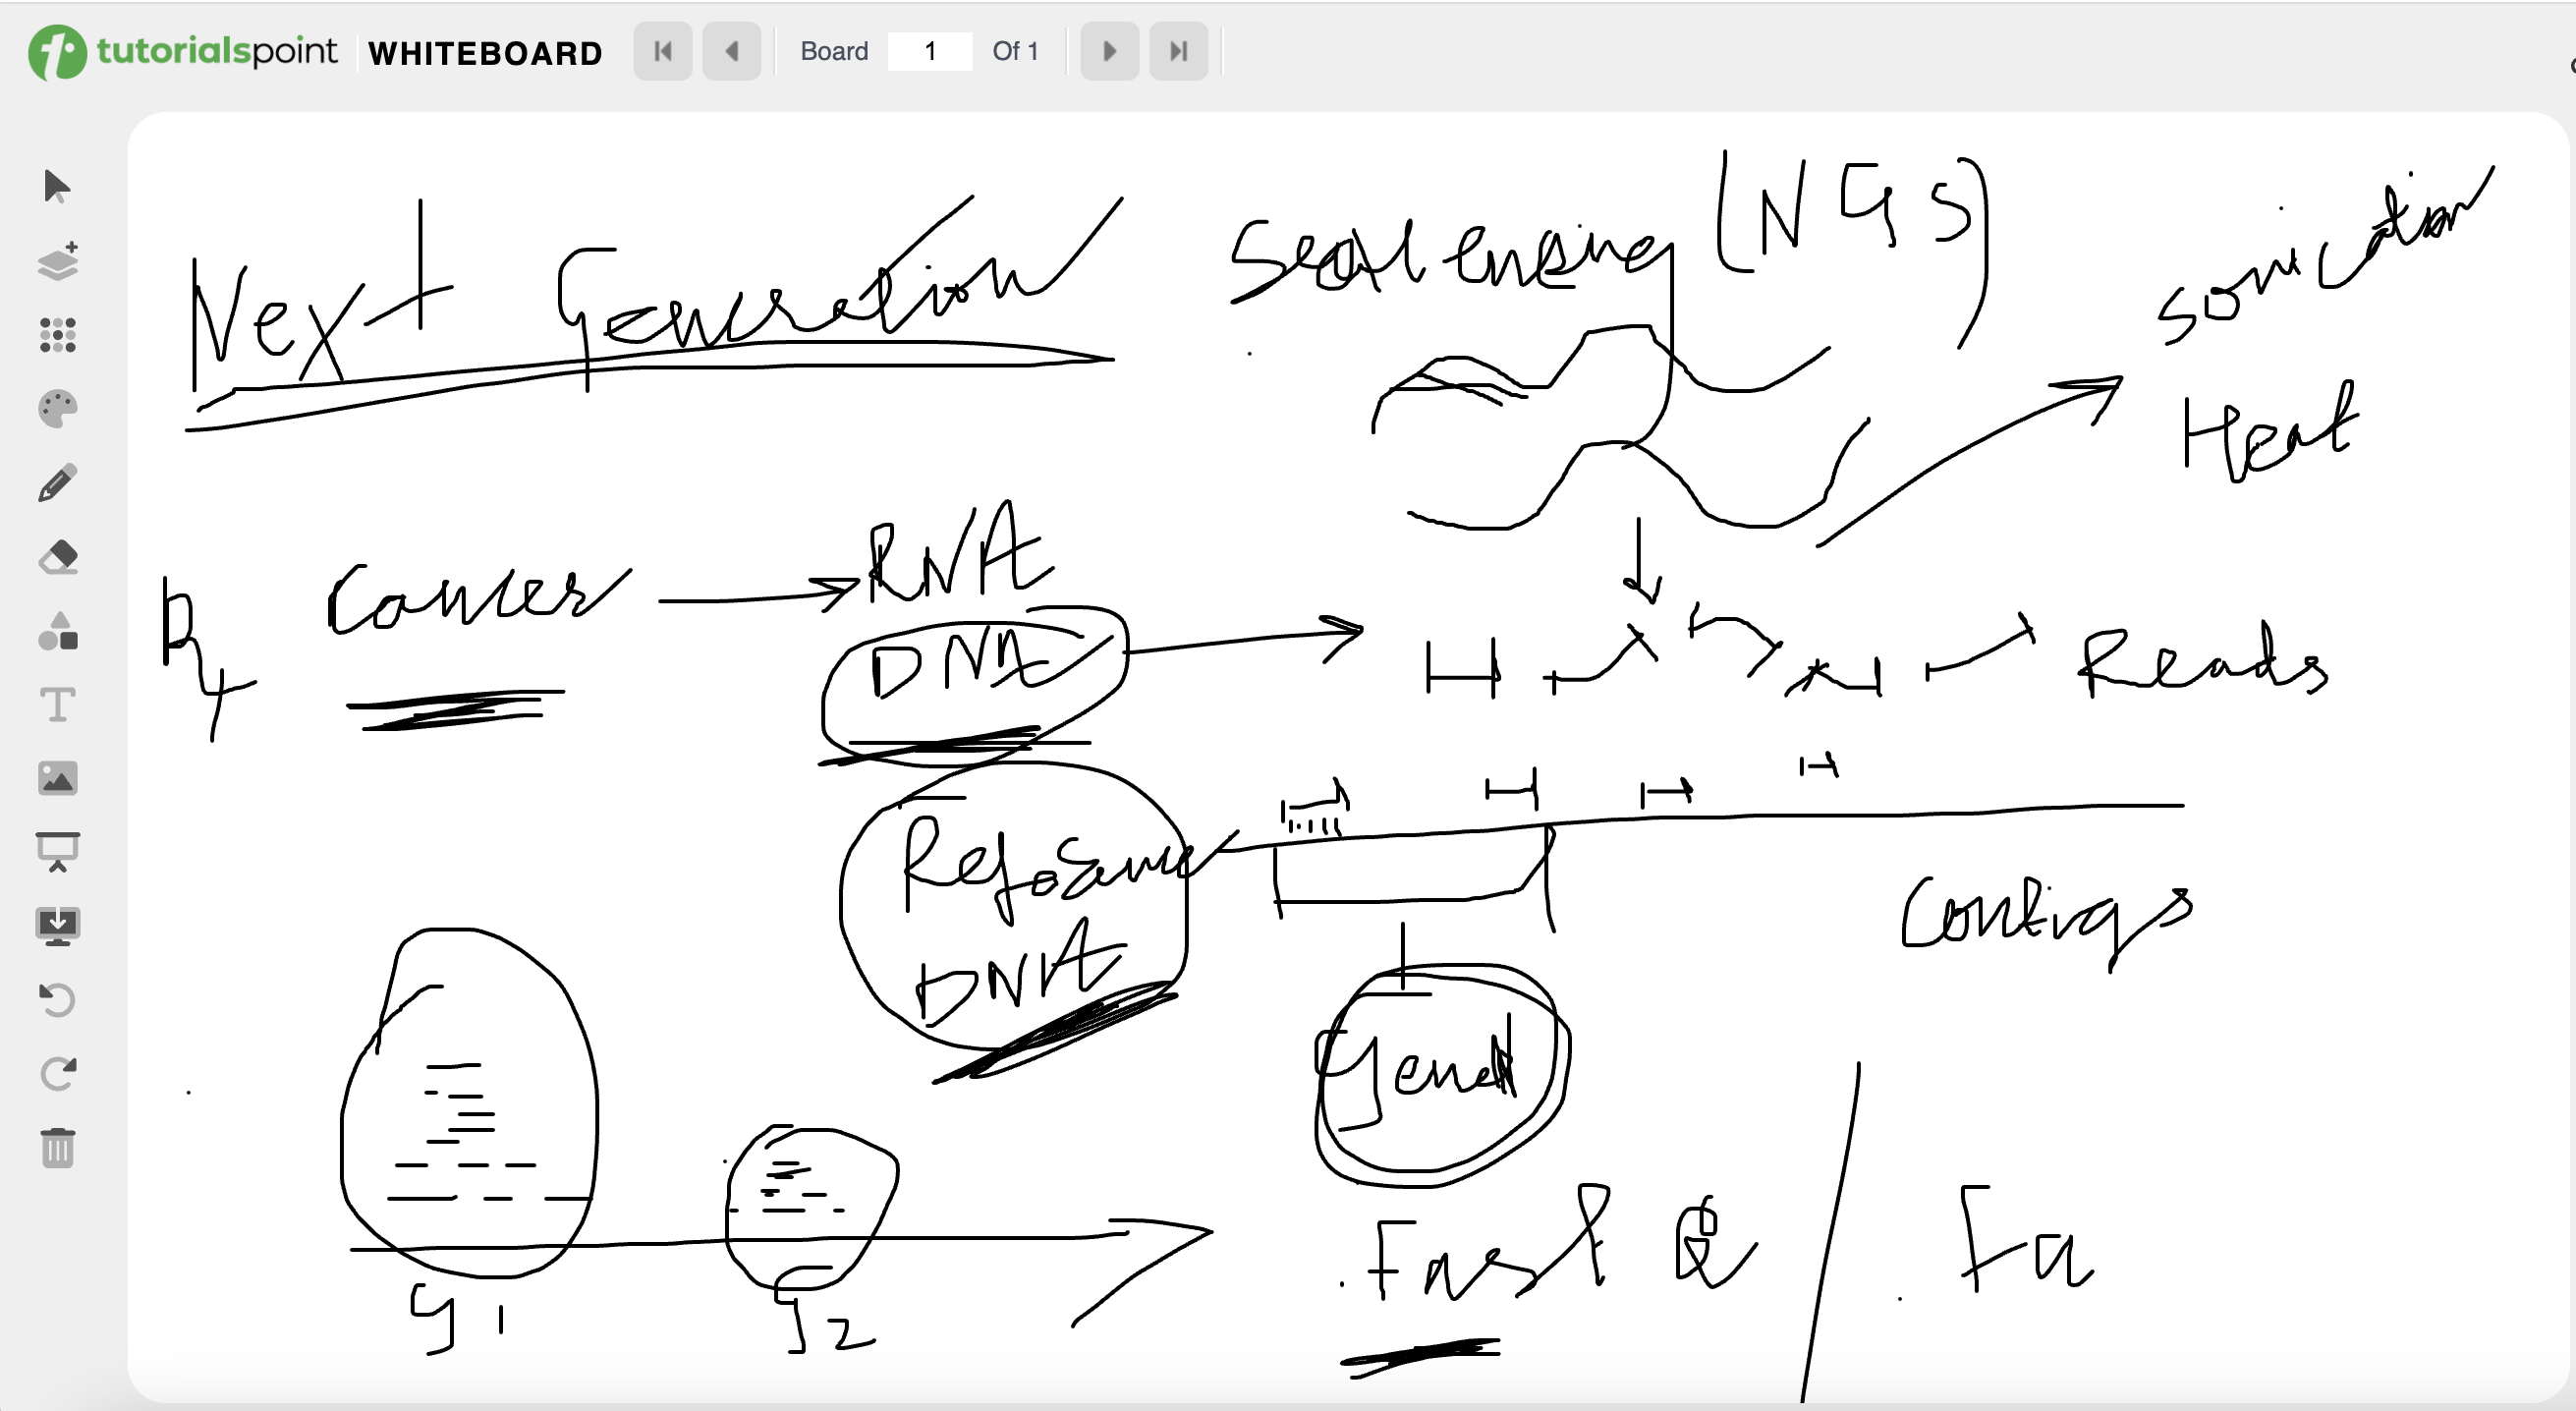 tutorialspoint WHITEBOARD Board 1 Of 1
Next Generation Sequencing (NGS)
Sonication
Heat
Cancer
RNA
DNA
Reads
Reference
DNA
Contigs
Gene
g1
g2
.Fast Q
.Fa
T